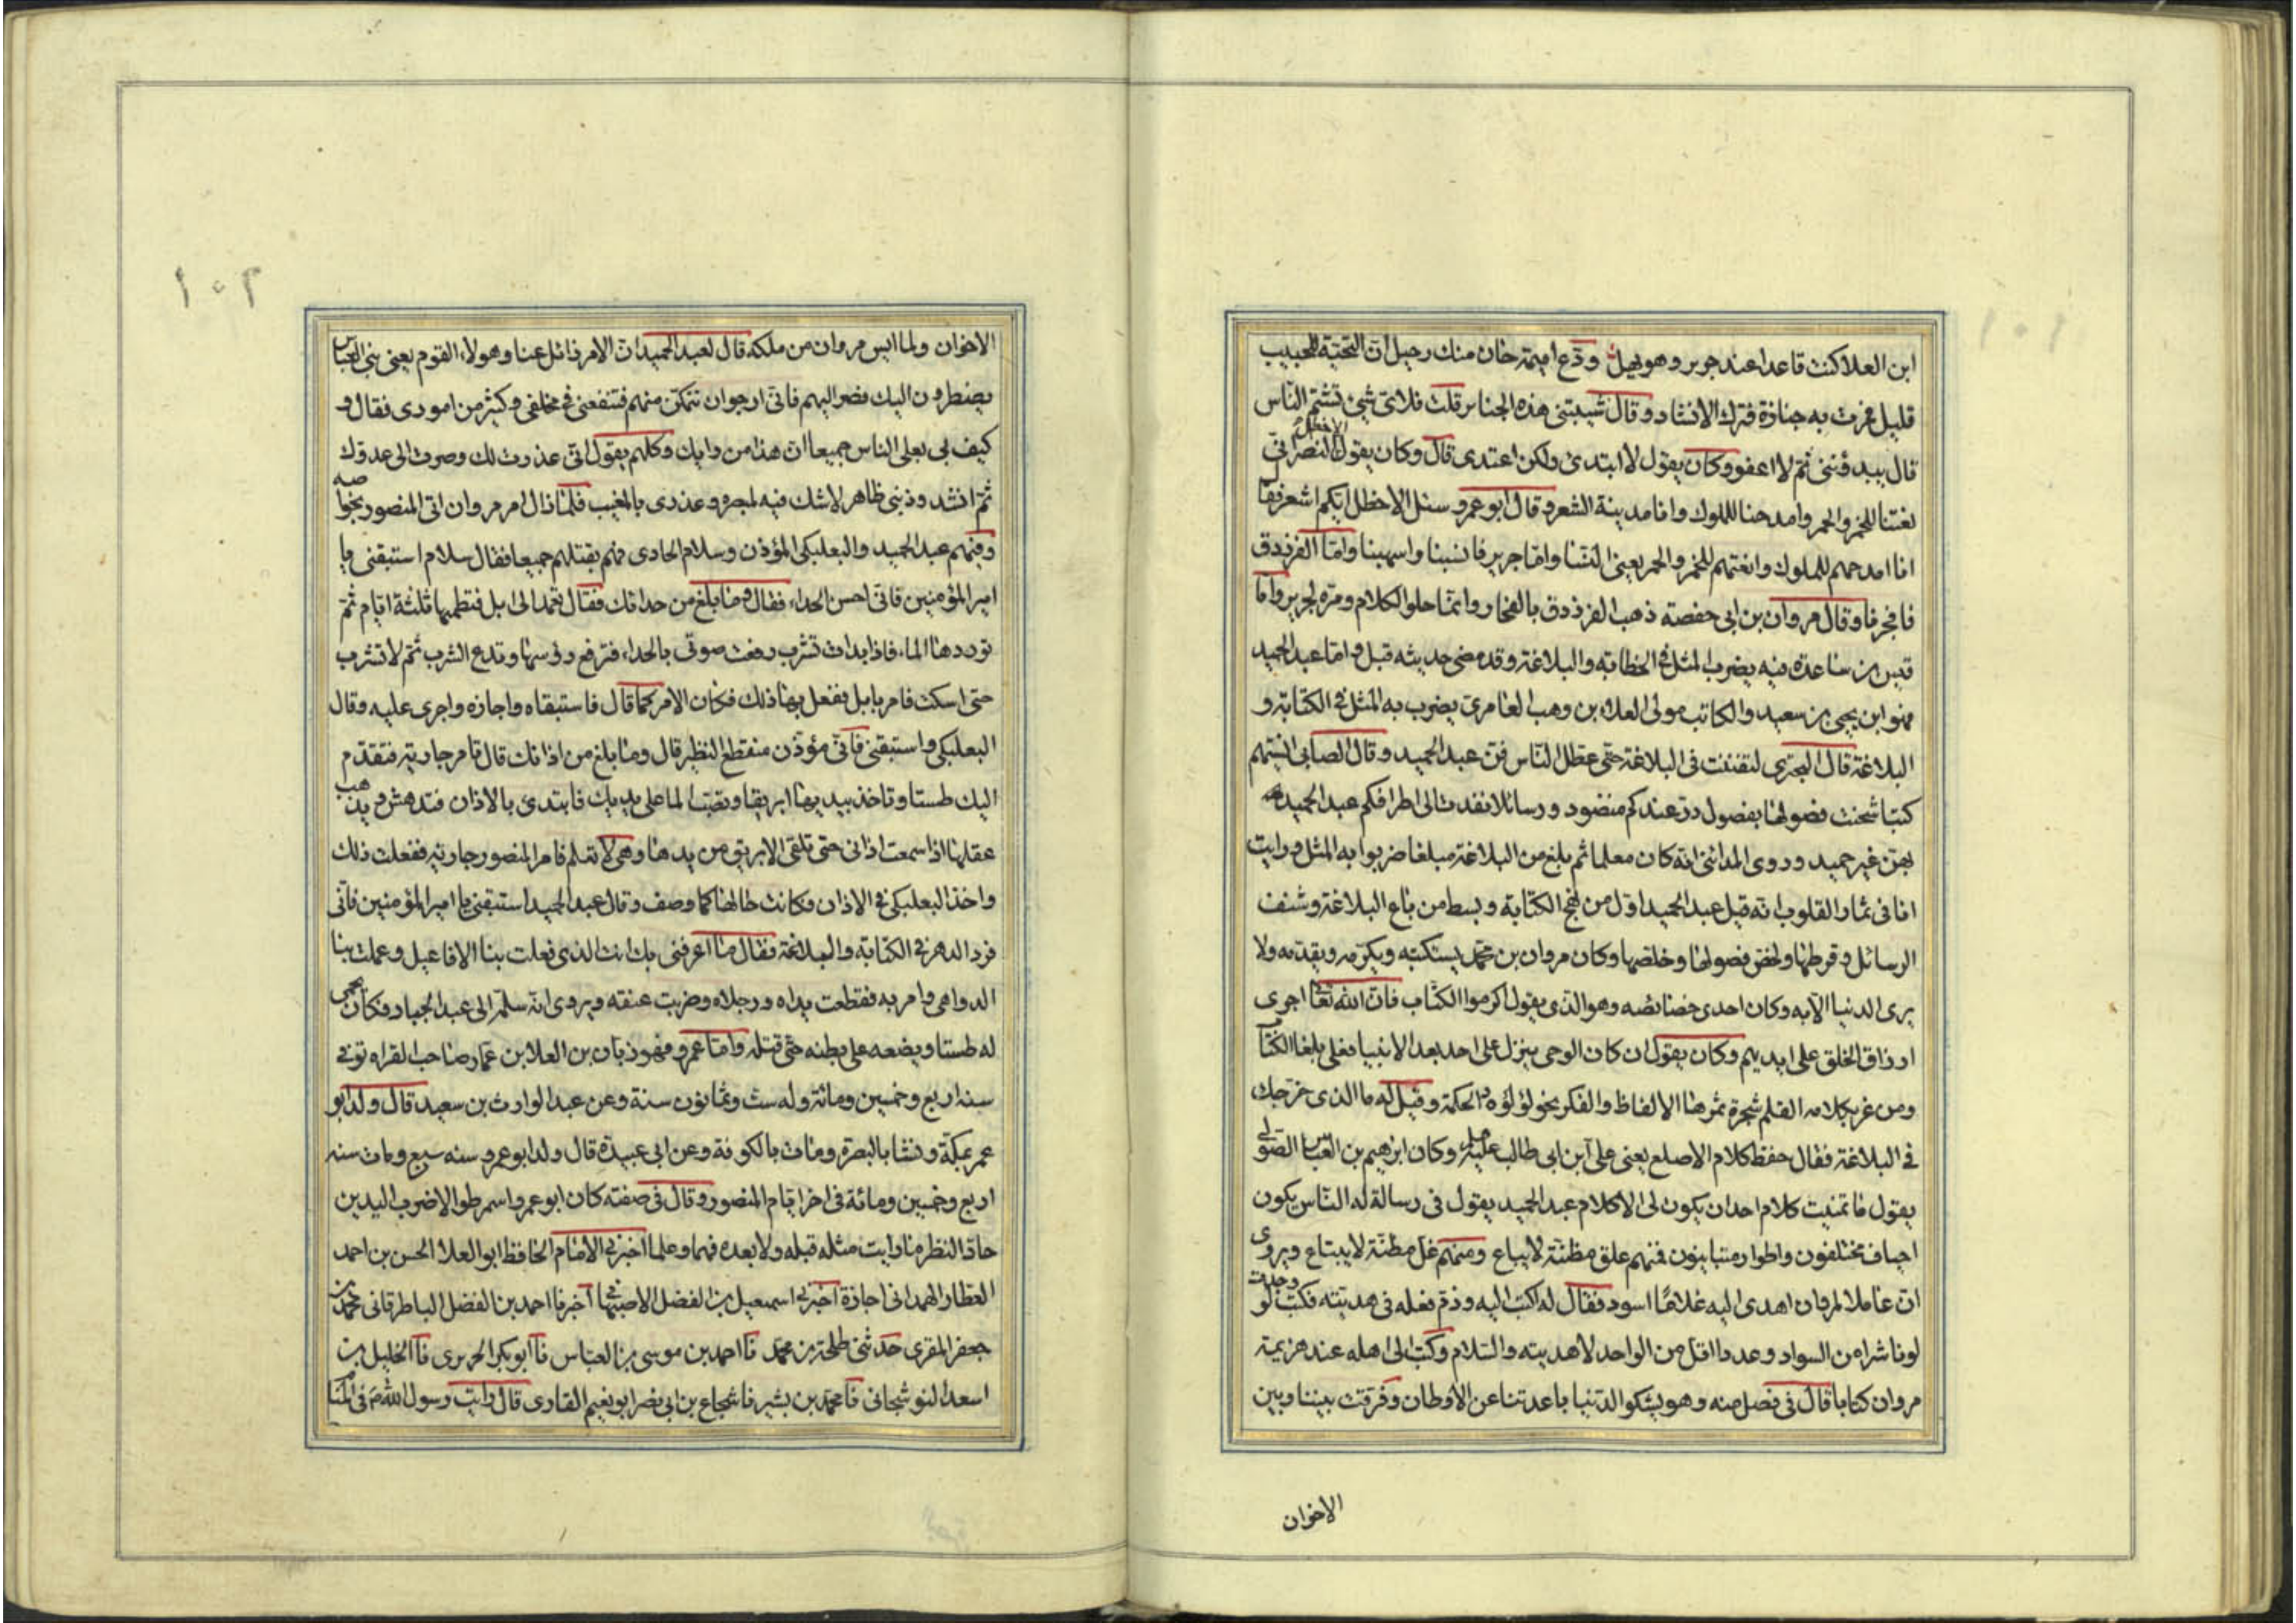 ابن العلا كنت قاعدا عند جرير وهو يملى ودع امیمة حان منك رحيل ان التحية للحبيب
قليل فمرت به جنازة فترك الانشاد وقال شيبتنى هذه الجنايز قلت فلاى شىء تشتم الناس
قال يبدؤننى ثم لا اعفو وكان يقول لا ابتدى ولكن اعتدى قال وكان يقول الاخطل النصرنى
لغتنا للخمر والحمر وامدحنا للملوك وانا مدينة الشعر وقال ابو عمرو سئل الاخطل ايكم اشعر فقا
انا امدحهم للملوك وانعتهم للخمر والحمر يعنى النسا واما جرير فانسبنا واسهبنا واما الفرزدق
فافخرنا وقال مروان بن ابى حفصة ذهب الفرزدق بالفخار وانما حلو الكلام ومره لجرير واما
قس بن ساعدة فيه يضرب المثل فى الخطابة والبلاغة وقد مضى حديثه قبل واما عبد الحميد
فهو ابن يحيى بن سعيد والكاتب مولى العلاء بن وهب العامرى يضرب به المثل فى الكتابة و
البلاغة قال البحترى لتفننت فى البلاغة حتى عطل الناس فن عبد الحميد وقال الصابى انسيتهم
كتبا شحنت فصولها بفصول در عندكم منضود ورسائلا نفدت الى اطرافكم عبد الحميد
بهن غير حميد وروى المدائنى انه كان معلما ثم بلغ من البلاغة مبلغا ضربوا به المثل ورايت
انا فى ثمار القلوب انه قيل عبد الحميد اول من نهج الكتابة وبسط من باع البلاغة وشنف
الرسائل وقرطها ولخص فصولها وخلصها وكان مروان بن محمد يستكتبه ويكرمه ويقدمه ولا
يرى الدنيا الا به وكان احدى خصائصه وهو الذى يقول اكرموا الكتاب فان الله تعا اجرى
ارزاق الخلق على ايديهم وكان يقول ان كان الوحى ينزل على احد بعد الانبيا فعلى بلغا الكتا
ومن غرر كلامه القلم شجرة ثمرها الالفاظ والفكر بحر لؤلؤه الحكمة وقيل له ما الذى خرجك
فى البلاغة فقال حفظ كلام الاصلع يعنى على ابن ابى طالب عليه وكان ابرهيم بن العباس الصولى
يقول ما تمنيت كلام احد ان يكون لى الا كلام عبد الحميد يقول فى رسالة له الناس يكون
اخياف مختلفون واطوار متباينون فمنهم علق مظنة لا يباع ومنهم غل مظنة لا يبتاع ويروى
ان عاملا لمروان اهدى اليه غلاما اسود فقال له اكتب اليه وذم فعله فى هديته فكتب لو وجدت
لونا شرا من السواد وعددا اقل من الواحد لاهديته والسلام وكتب الى اهله عند هزيمة
مروان كتابا قال فى فصل منه وهو يشكو الدنيا باعدتنا عن الاوطان وفرقت بيننا وبين
الاخوان
١٠٢
الاخوان ولما ايس مروان من ملكه قال لعبد الحميد ان الامر زائل عنا وهولاء القوم يعنى بنى العباس
يضطرون اليك فصر اليهم فانى ارجو ان تتمكن منهم فتنفعنى فى مخلفى وكثير من امورى فقال و
كيف لى بعلم الناس جميعا ان هذا من رايك وكلهم يقول انى غدرت لك وصرت الى عدوك
ثم انشد وذنبى ظاهر لاشك فيه لمبصره وعذرى بالمغيب فلما زال امر مروان اتى المنصور بخواصه
وفيهم عبد الحميد والبعلبكى المؤذن وسلام الحادى فهم بقتلهم جميعا فقال سلام استبقنى يا
امير المؤمنين فانى احسن الحداء فقال وما بلغ من حدائك فقال تعمد الى ابل فتظمیها ثلثة ايام ثم
توردها الماء فاذا بدات تشرب رفعت صوتى بالحداء فترفع رؤسها وتدع الشرب ثم لا تشرب
حتى اسكت فامر بابل ففعل بها ذلك فكان الامر كما قال فاستبقاه واجازه واجرى عليه وقال
البعلبكى واستبقنى فانى مؤذن منقطع النظير قال وما بلغ من اذانك قال تامر جارية فتقدم
اليك طستا وتاخذ بيديها ابريقا وتصب الما على يديك فابتدى بالاذان فتدهش ويذهب
عقلها اذا سمعت اذانى حتى تلقى الابريق من يدها وهى لا تعلم فامر المنصور جارية ففعلت ذلك
واخذ البعلبكى فى الاذان وكانت حالها كما وصف وقال عبد الحميد استبقنى يا امير المؤمنين فانى
فرد الدهر فى الكتابة والبلاغة فقال ما اعرفنى بك انت الذى فعلت بنا الافاعيل وعملت بنا
الدواهى وامر به فقطعت يداه ورجلاه وضربت عنقه ويروى انه سلم الى عبد الجبار فكان يحمى
له طستا ويضعه على بطنه حتى قتله واما عمرو فهو زبان بن العلا بن عمار صاحب القراه توفى
سنة اربع وخمسين ومائة وله ست وثمانون سنة وعن عبد الوارث بن سعيد قال ولد ابو
عمر بمكة ونشا بالبصرة ومات بالكوفة وعن ابى عبيدة قال ولد ابو عمرو سنه سبع ومات سنه
اربع وخمسين ومائة فى اخر ايام المنصور وقال فى صفته كان ابو عمرو اسمر طوالا ضرب اليدين
حاد النظر ما رايت مثله قبله ولا بعده فهما وعلما اخبرنى الامام الحافظ ابو العلا الحسن بن احمد
العطار الهمدانى اجازة اخبرنى اسمعيل بن الفضل الاصبهانى اخبرنا احمد بن الفضل الباطرقانى محمد بن
جعفر المقرى حدثنى طلحة بن محمد نا احمد بن موسى بن العباس نا ابو بكر الحريرى نا الخليل بن
اسعد النوشجانى نا محمد بن بشير نا شجاع بن ابى نصر ابو نعيم القارى قال رايت رسول الله ص فى المنا